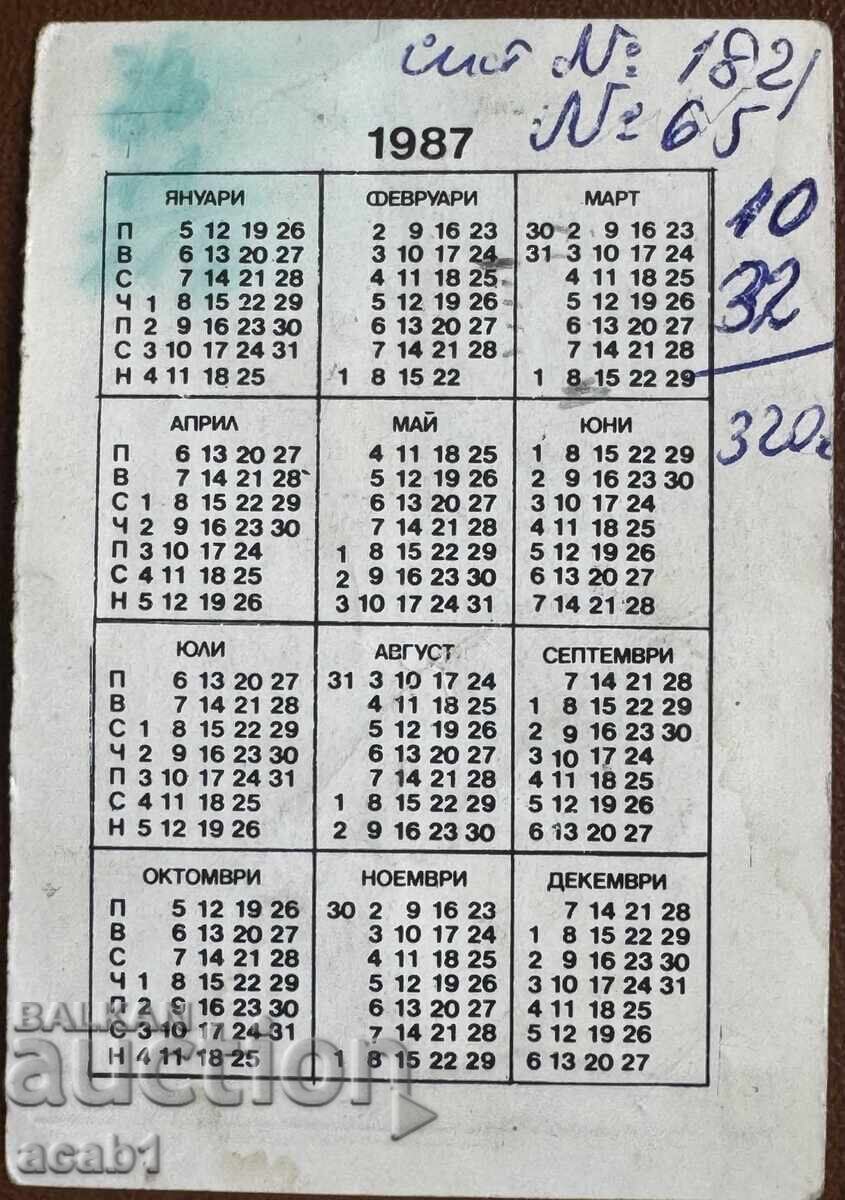 № 182
№ 65
1987
10
32
320
ЯНУАРИ
П 5 12 19 26
В 6 13 20 27
С 7 14 21 28
Ч 1 8 15 22 29
П 2 9 16 23 30
С 3 10 17 24 31
Н 4 11 18 25
ФЕВРУАРИ
2 9 16 23
3 10 17 24
4 11 18 25
5 12 19 26
6 13 20 27
7 14 21 28
1 8 15 22
МАРТ
30 2 9 16 23
31 3 10 17 24
4 11 18 25
5 12 19 26
6 13 20 27
7 14 21 28
1 8 15 22 29
АПРИЛ
П 6 13 20 27
В 7 14 21 28
С 1 8 15 22 29
Ч 2 9 16 23 30
П 3 10 17 24
С 4 11 18 25
Н 5 12 19 26
МАЙ
4 11 18 25
5 12 19 26
6 13 20 27
7 14 21 28
1 8 15 22 29
2 9 16 23 30
3 10 17 24 31
ЮНИ
1 8 15 22 29
2 9 16 23 30
3 10 17 24
4 11 18 25
5 12 19 26
6 13 20 27
7 14 21 28
ЮЛИ
П 6 13 20 27
В 7 14 21 28
С 1 8 15 22 29
Ч 2 9 16 23 30
П 3 10 17 24 31
С 4 11 18 25
Н 5 12 19 26
АВГУСТ
31 3 10 17 24
4 11 18 25
5 12 19 26
6 13 20 27
7 14 21 28
1 8 15 22 29
2 9 16 23 30
СЕПТЕМВРИ
7 14 21 28
1 8 15 22 29
2 9 16 23 30
3 10 17 24
4 11 18 25
5 12 19 26
6 13 20 27
ОКТОМВРИ
П 5 12 19 26
В 6 13 20 27
С 7 14 21 28
Ч 1 8 15 22 29
П 2 9 16 23 30
С 3 10 17 24 31
Н 4 11 18 25
НОЕМВРИ
30 2 9 16 23
3 10 17 24
4 11 18 25
5 12 19 26
6 13 20 27
7 14 21 28
1 8 15 22 29
ДЕКЕМВРИ
7 14 21 28
1 8 15 22 29
2 9 16 23 30
3 10 17 24 31
4 11 18 25
5 12 19 26
6 13 20 27
BALKAN
auction
acab1